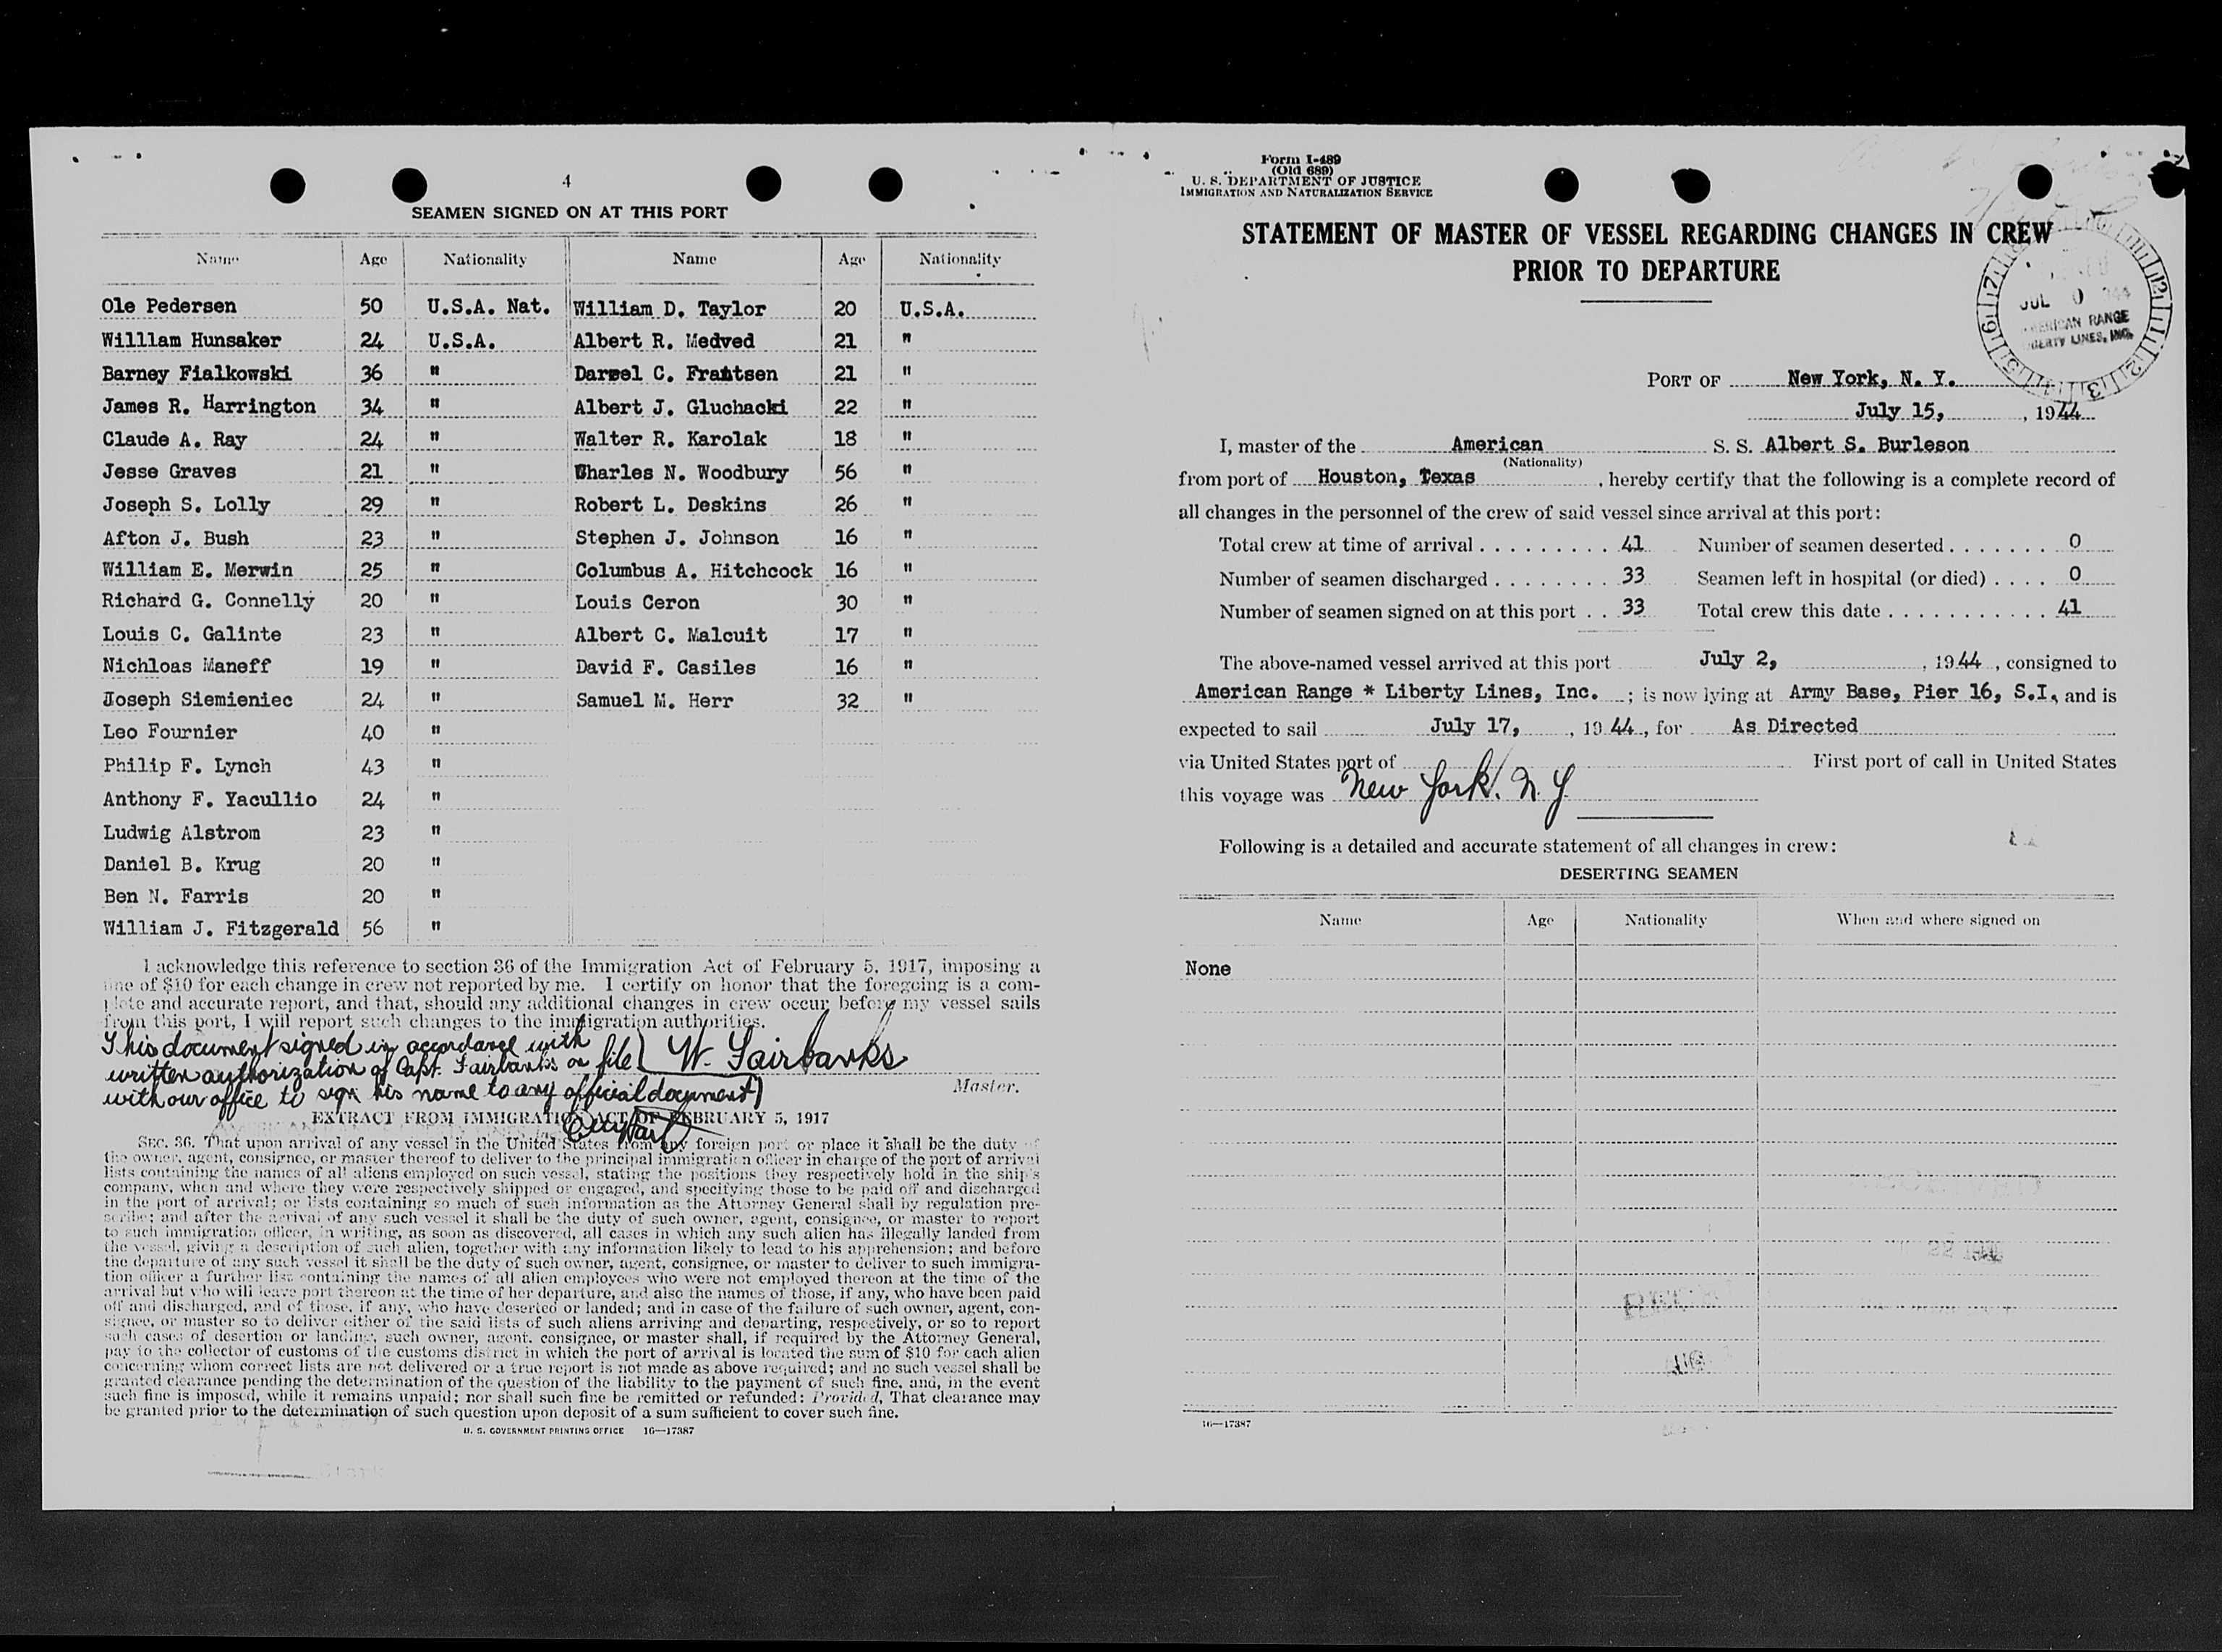 4
SEAMEN SIGNED ON AT THIS PORT
Name Age Nationality Name Age Nationality
Ole Pedersen 50 U.S.A. Nat. William D. Taylor 20 U.S.A.
Willlam Hunsaker 24 U.S.A. Albert R. Medved 21 "
Barney Fialkowski 36 " Darwel C. Frantsen 21 "
James R. Harrington 34 " Albert J. Gluchacki 22 "
Claude A. Ray 24 " Walter R. Karolak 18 "
Jesse Graves 21 " Charles N. Woodbury 56 "
Joseph S. Lolly 29 " Robert L. Deskins 26 "
Afton J. Bush 23 " Stephen J. Johnson 16 "
William E. Merwin 25 " Columbus A. Hitchcock 16 "
Richard G. Connelly 20 " Louis Ceron 30 "
Louis C. Galinte 23 " Albert C. Malcuit 17 "
Nichloas Maneff 19 " David F. Casiles 16 "
Joseph Siemieniec 24 " Samuel M. Herr 32 "
Leo Fournier 40 "
Philip F. Lynch 43 "
Anthony F. Yacullio 24 "
Ludwig Alstrom 23 "
Daniel B. Krug 20 "
Ben N. Farris 20 "
William J. Fitzgerald 56 "
I acknowledge this reference to section 36 of the Immigration Act of February 5, 1917, imposing a
fine of $10 for each change in crew not reported by me. I certify on honor that the foregoing is a com-
plete and accurate report, and that, should any additional changes in crew occur before my vessel sails
from this port, I will report such changes to the immigration authorities.
This document signed in accordance with
written authorization of Capt. Fairbanks on file) W. Fairbanks
with our office to sign his name to any official document)
Master.
EXTRACT FROM IMMIGRATION ACT OF FEBRUARY 5, 1917
SEC. 36. That upon arrival of any vessel in the United States from any foreign port or place it shall be the duty of
the owner, agent, consignee, or master thereof to deliver to the principal immigration officer in charge of the port of arrival
lists containing the names of all aliens employed on such vessel, stating the positions they respectively hold in the ship's
company, when and where they were respectively shipped or engaged, and specifying those to be paid off and discharged
in the port of arrival; or lists containing so much of such information as the Attorney General shall by regulation pre-
scribe; and after the arrival of any such vessel it shall be the duty of such owner, agent, consignee, or master to report
to such immigration officer, in writing, as soon as discovered, all cases in which any such alien has illegally landed from
the vessel, giving a description of such alien, together with any information likely to lead to his apprehension; and before
the departure of any such vessel it shall be the duty of such owner, agent, consignee, or master to deliver to such immigra-
tion officer a further list containing the names of all alien employees who were not employed thereon at the time of the
arrival but who will leave port thereon at the time of her departure, and also the names of those, if any, who have been paid
off and discharged, and of those, if any, who have deserted or landed; and in case of the failure of such owner, agent, con-
signee, or master so to deliver either of the said lists of such aliens arriving and departing, respectively, or so to report
such cases of desertion or landing, such owner, agent, consignee, or master shall, if required by the Attorney General,
pay to the collector of customs of the customs district in which the port of arrival is located the sum of $10 for each alien
concerning whom correct lists are not delivered or a true report is not made as above required; and no such vessel shall be
granted clearance pending the determination of the question of the liability to the payment of such fine, and, in the event
such fine is imposed, while it remains unpaid; nor shall such fine be remitted or refunded: Provided, That clearance may
be granted prior to the determination of such question upon deposit of a sum sufficient to cover such fine.
U. S. GOVERNMENT PRINTING OFFICE 16—17387
Form I-489
(Old 689)
U. S. DEPARTMENT OF JUSTICE
IMMIGRATION AND NATURALIZATION SERVICE
STATEMENT OF MASTER OF VESSEL REGARDING CHANGES IN CREW
PRIOR TO DEPARTURE
JUL
AMERICAN RANGE
LIBERTY LINES, INC.
PORT OF New York, N. Y.
July 15, , 1944
I, master of the American S. S. Albert S. Burleson
(Nationality)
from port of Houston, Texas , hereby certify that the following is a complete record of
all changes in the personnel of the crew of said vessel since arrival at this port:
Total crew at time of arrival . . . . . . . . . 41 Number of seamen deserted . . . . . . . 0
Number of seamen discharged . . . . . . . . 33 Seamen left in hospital (or died) . . . . 0
Number of seamen signed on at this port . . 33 Total crew this date . . . . . . . . . . . 41
The above-named vessel arrived at this port July 2, , 1944 , consigned to
American Range * Liberty Lines, Inc. ; is now lying at Army Base, Pier 16, S.I, and is
expected to sail July 17, , 1944 , for As Directed
via United States port of First port of call in United States
this voyage was New York. N. Y
Following is a detailed and accurate statement of all changes in crew:
DESERTING SEAMEN
Name Age Nationality When and where signed on
None
16—17387